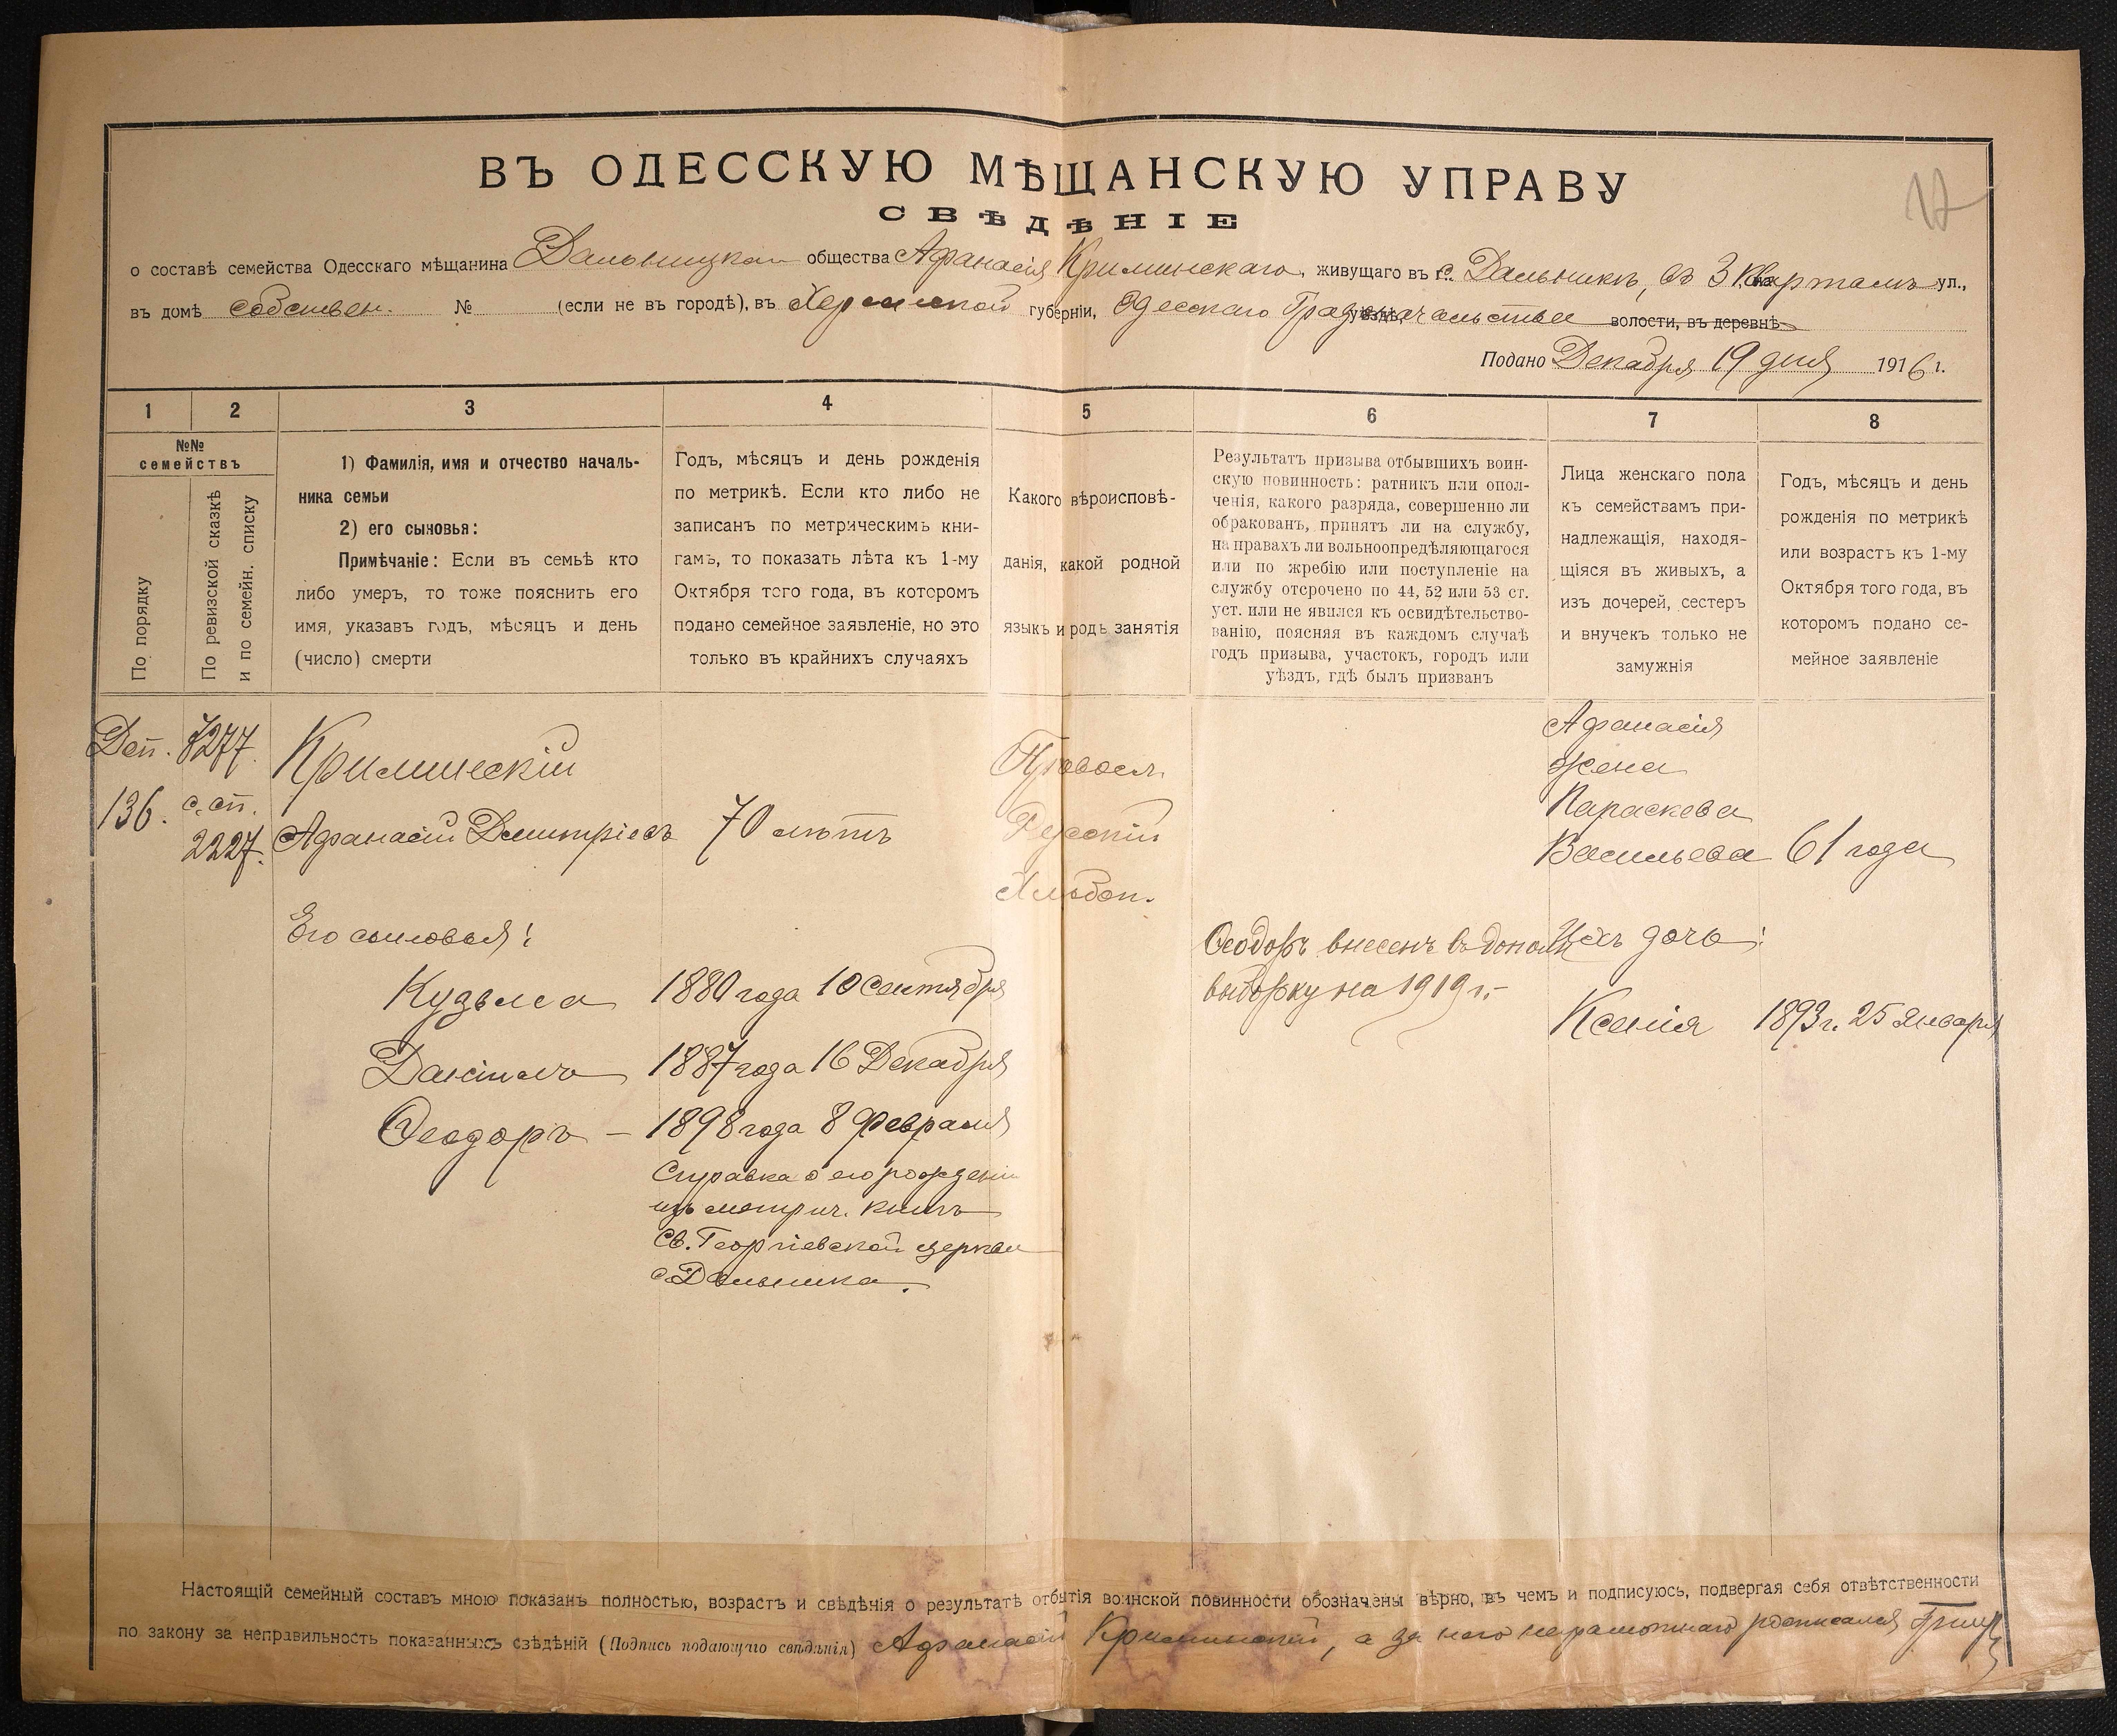 12
ВЪ ОДЕССКУЮ МѢЩАНСКУЮ УПРАВУ
СВѢДѢНІЕ
о составѣ семейства Одесскаго мѣщанина Дальницкаго общества Афанасія Криминскаго, живущаго въ с. Дальникѣ, въ 3 кварталѣ ул.,
въ домѣ собствен. № (если не въ городѣ), въ Херсонской губерніи, Одесскаго Градоначальства уѣзда, волости, въ деревнѣ
Подано Декабря 19 дня 1916 г.
1 2 3 4 5 6 7 8
№№ семействъ
По порядку
По ревизской сказкѣ и по семейн. списку
1) Фамилія, имя и отчество началь-
ника семьи
2) его сыновья:
Примѣчаніе: Если въ семьѣ кто
либо умеръ, то тоже пояснить его
имя, указавъ годъ, мѣсяцъ и день
(число) смерти
Годъ, мѣсяцъ и день рожденія
по метрикѣ. Если кто либо не
записанъ по метрическимъ кни-
гамъ, то показать лѣта къ 1-му
Октября того года, въ которомъ
подано семейное заявленіе, но это
только въ крайнихъ случаяхъ
Какого вѣроисповѣ-
данія, какой родной
языкъ и родъ занятія
Результатъ призыва отбывшихъ воин-
скую повинность: ратникъ или опол-
ченія, какого разряда, совершенно ли
обракованъ, принятъ ли на службу,
на правахъ ли вольноопредѣляющагося
или по жребію или поступленіе на
службу отсрочено по 44, 52 или 53 ст.
уст. или не явился къ освидѣтельство-
ванію, поясняя въ каждомъ случаѣ
годъ призыва, участокъ, городъ или
уѣздъ, гдѣ былъ призванъ
Лица женскаго пола
къ семействамъ при-
надлежащія, находя-
щіяся въ живыхъ, а
изъ дочерей, сестеръ
и внучекъ только не
замужнія
Годъ, мѣсяцъ и день
рожденія по метрикѣ
или возрастъ къ 1-му
Октября того года, въ
которомъ подано се-
мейное заявленіе
136.
с. сп.
2227.
Криминскій
Афанасій Дмитріевъ
70 лѣтъ
Правосл.
Русскій
Хлѣбоп.
Афанасія
жена
Параскева
Васильева 61 года
Его сыновья:
Кузьма 1880 года 10 Сентября
Даніилъ 1887 года 16 Декабря
Ѳеодоръ — 1898 года 8 Февраля
Справка о его рожденіи
изъ метрич. книгъ
Св. Георгіевской церкви
с. Дальника.
Ѳеодоръ внесенъ въ дополн.
выборку на 1919 г.
Ихъ дочь:
Ксенія 1893 г. 25 Января
Настоящій семейный составъ мною показанъ полностью, возрастъ и свѣдѣнія о результатѣ отбытія воинской повинности обозначены вѣрно, въ чемъ и подписуюсь, подвергая себя отвѣтственности
по закону за неправильность показанныхъ свѣдѣній (Подпись подающаго свѣдѣнія) Афанасій Криминскій, а за него неграмотнаго росписался